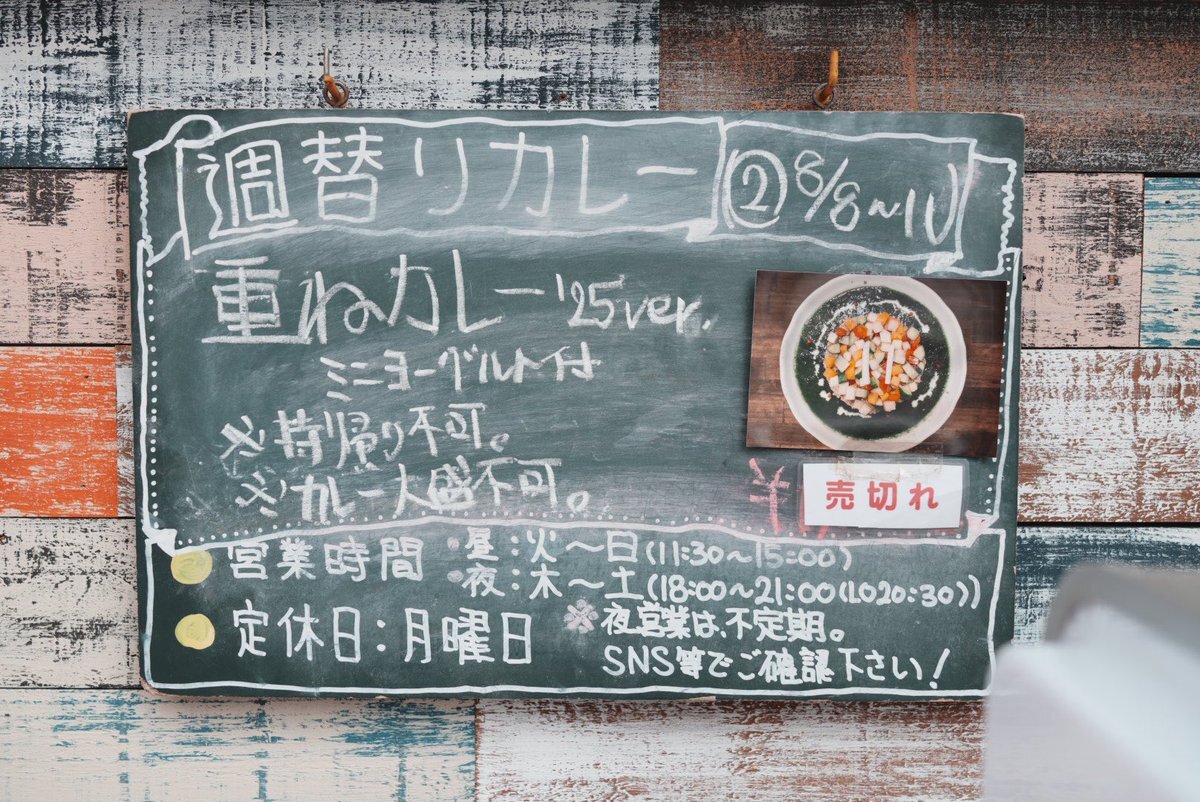 週替りカレー ② 8/8~10
重ねカレー '25ver.
ミニヨーグルト付
※持帰り不可。
※カレー大盛不可。
¥
売切れ
営業時間 昼:火～日(11:30～15:00)
夜:木～土(18:00～21:00(LO20:30))
定休日:月曜日
※夜営業は、不定期。
SNS等でご確認下さい!